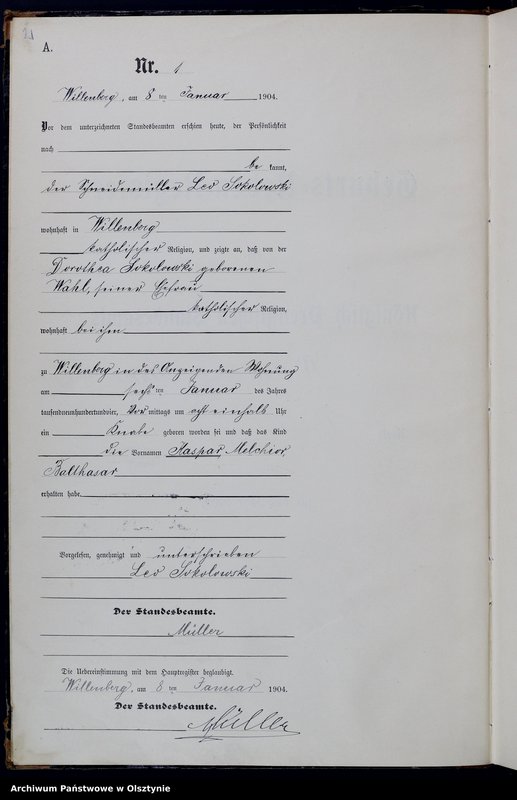 21
A.
Nr. 1
Willenberg, am 8 ten Januar 1904.
Vor dem unterzeichneten Standesbeamten erschien heute, der Persönlichkeit
nach
be kannt,
der Schneidemüller Leo Sokolowski
wohnhaft in Willenberg
katholischer Religion, und zeigte an, daß von der
Dorothea Sokolowski geborenen
Wahl, seiner Ehefrau
katholischer Religion,
wohnhaft bei ihm
zu Willenberg in des Anzeigenden Wohnung
am sechs ten Januar des Jahres
tausendneunhundertundvier, Vor mittags um acht einhalb Uhr
ein Knabe geboren worden sei und daß das Kind
die Vornamen Kaspar Melchior
Balthasar
erhalten habe
Vorgelesen, genehmigt und unterschrieben
Leo Sokolowski
Der Standesbeamte.
Müller
Die Uebereinstimmung mit dem Hauptregister beglaubigt.
Willenberg, am 8 ten Januar 1904.
Der Standesbeamte.
Müller
Archiwum Państwowe w Olsztynie